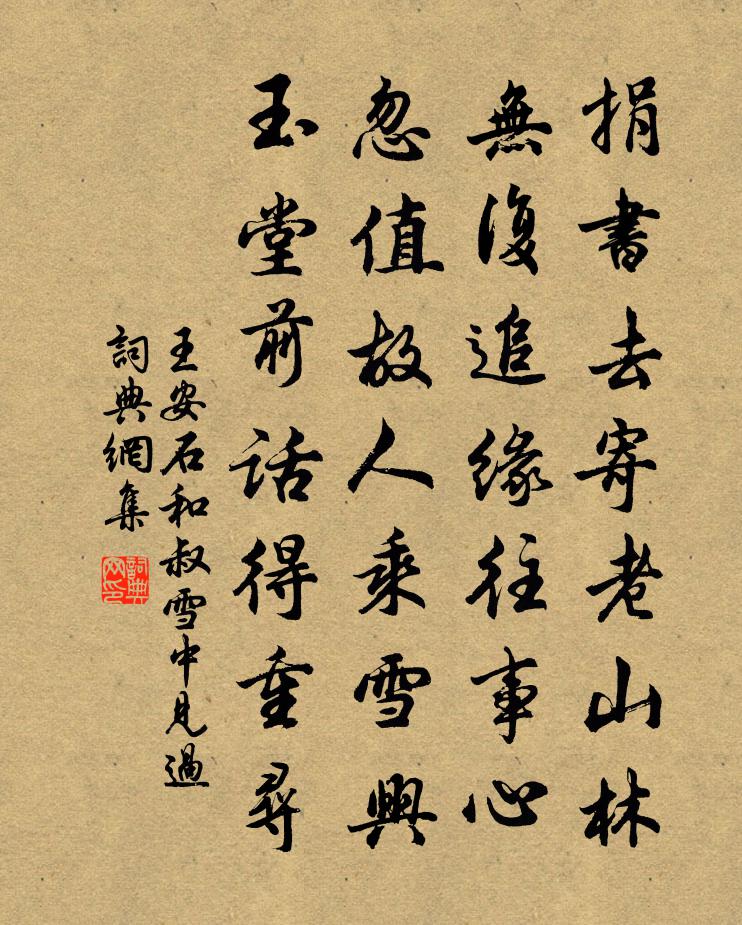 捐書去寄老山林
無復追緣往事心
忽值故人乘雪興
玉堂前話得重尋
王安石和叔雪中見過
詞典網集
詞典网印